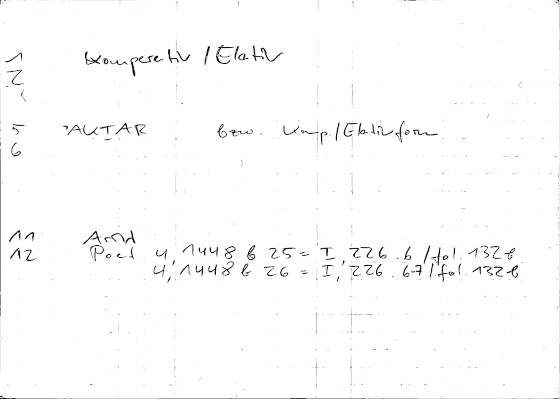 1 Komparativ / Elativ
2
5 ʾAKṮAR bzw. Komp./Elativform
6
11 Arnd
12 Poet 4, 1448 b 25 = I, 226.6 / fol. 132b
4, 1448 b 26 = I, 226.67 / fol. 132b